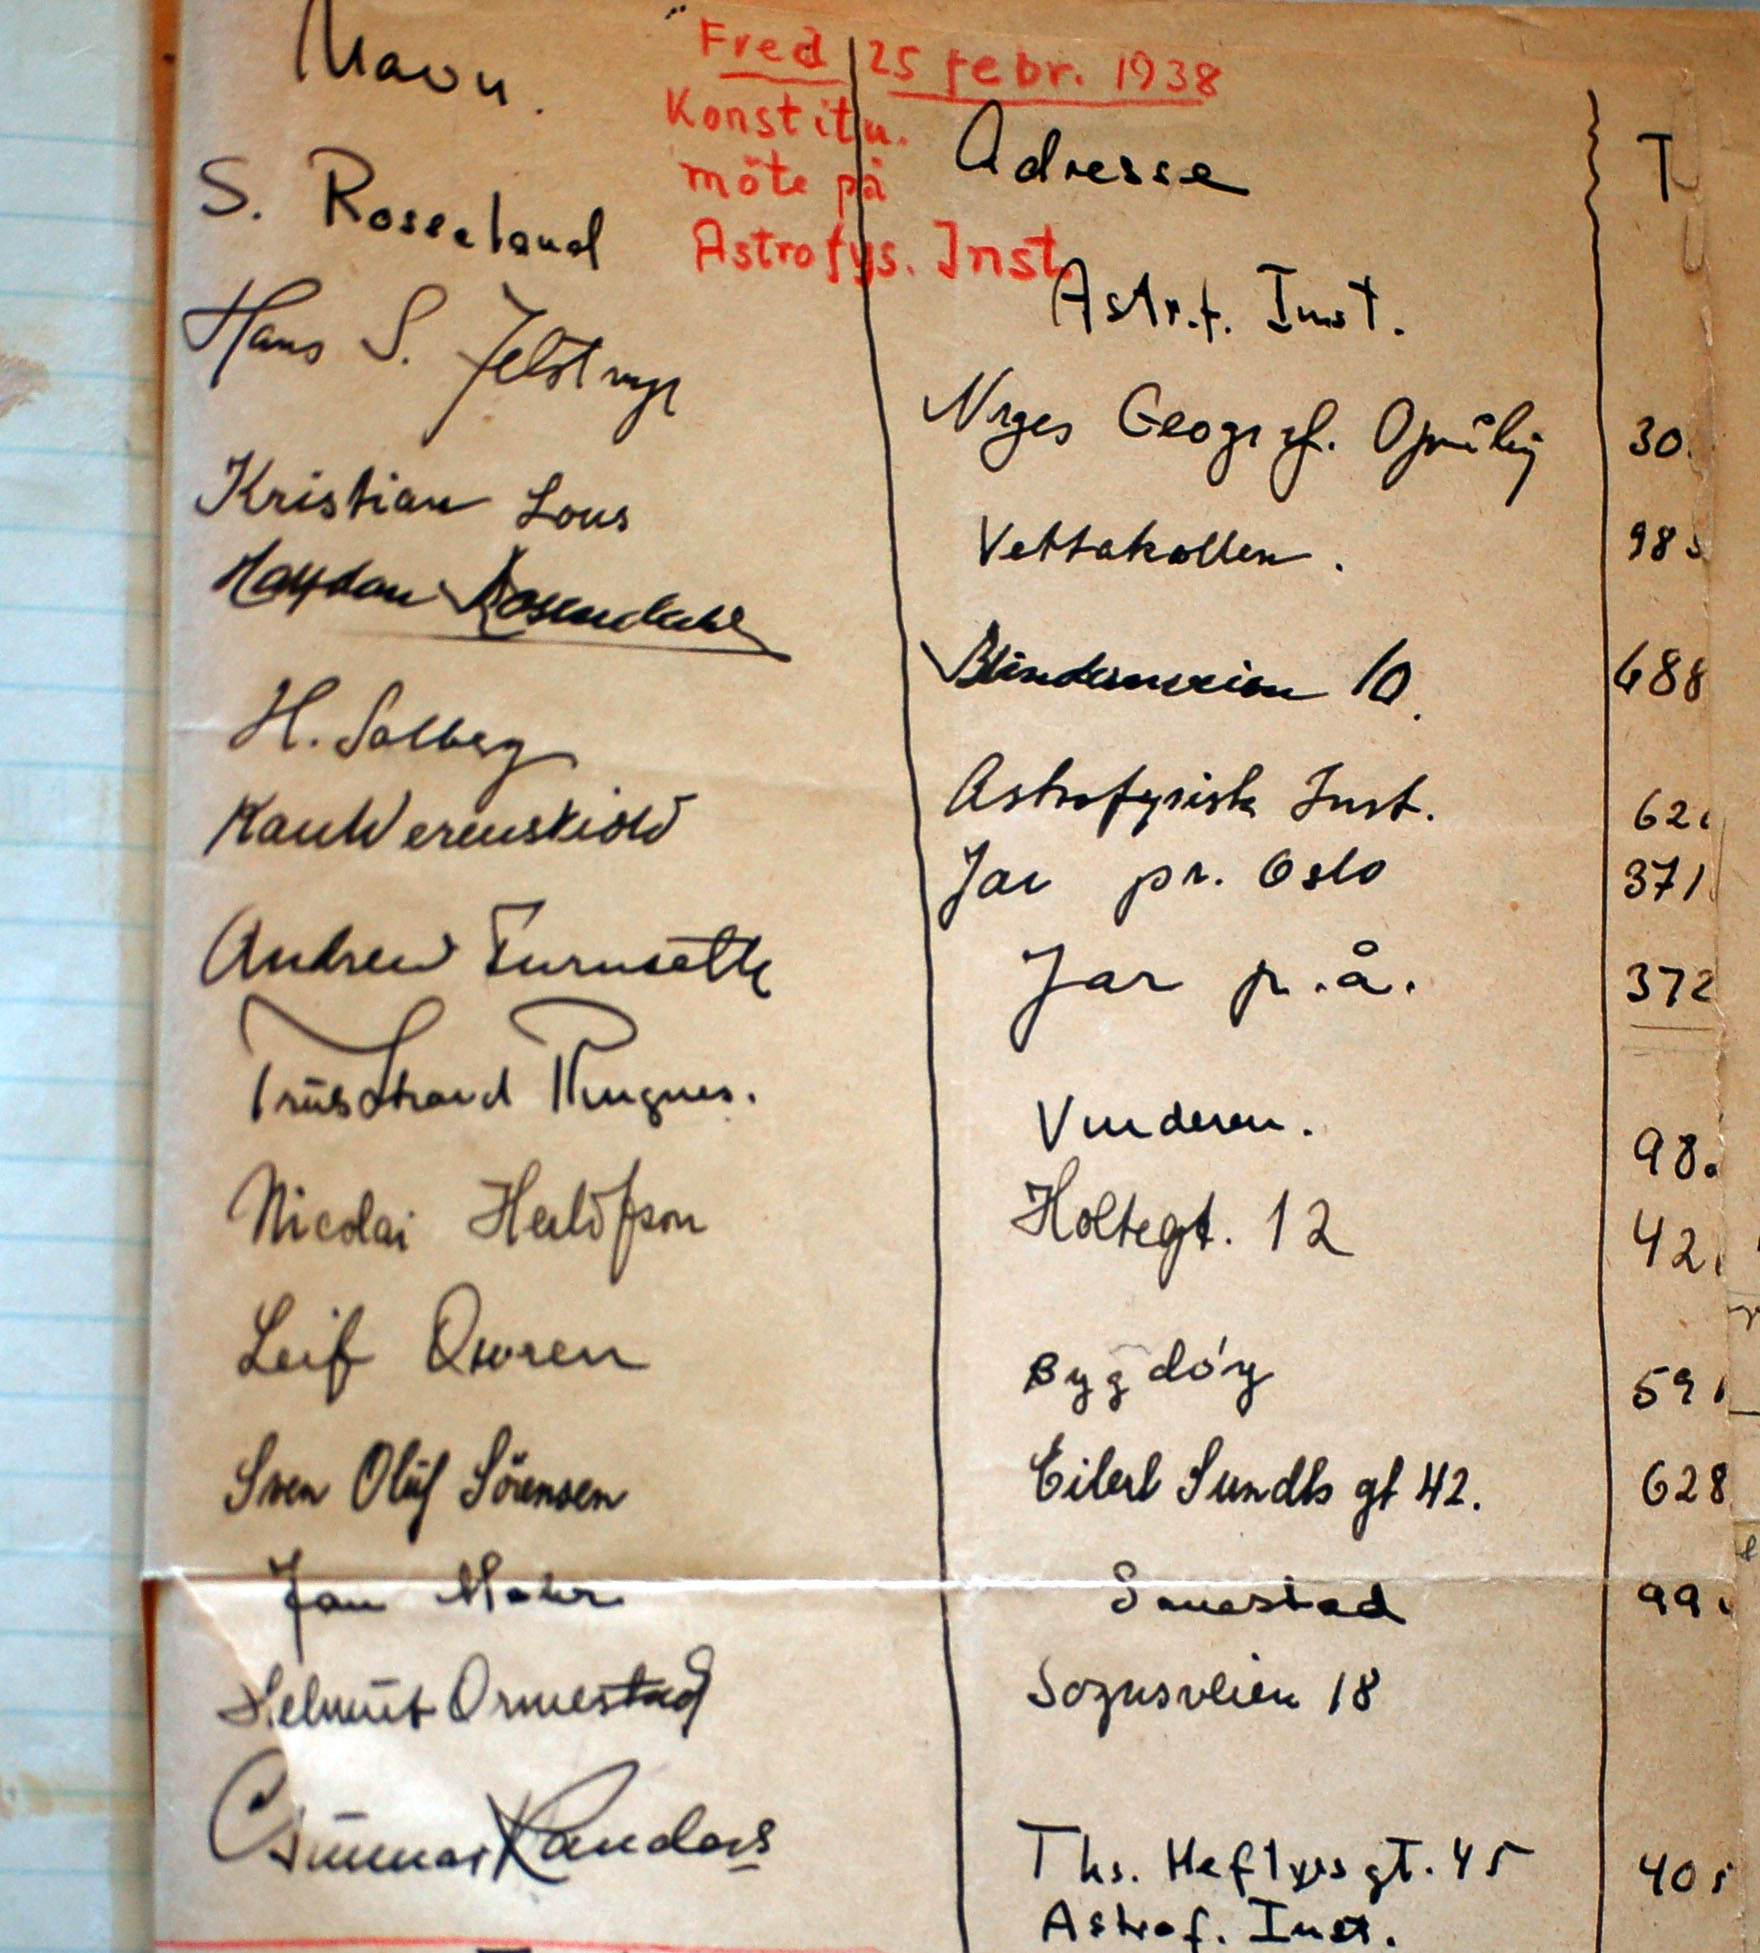 Navn.
Fred 25 febr. 1938
Konstitu.
möte på
Astrofys. Inst.
Adresse
T
S. Rosseland
Astr.f. Inst.
Hans S. Jelstrup
Norges Geogr. Opmåling
30
Kristian Lous
Vettakollen.
98
Halfdan Rosendahl
Blindernveien 10.
688
H. Solberg
Astrofysisk Inst.
62
Werenskiold
Jar pr. Oslo
371
Andrew
Jar p.å.
372
Truls Strand
Vinderen.
98
Nicolai Herlofson
Holtegt. 12
42
Leif Owren
Bygdöy
59
Sven Oluf Sörensen
Eilert Sundts gt 42.
628
Jan
99
Helmut Ormestad
Sognsveien 18
Gunnar Randers
Ths. Heftyes gt. 45
40
Astrof. Inst.